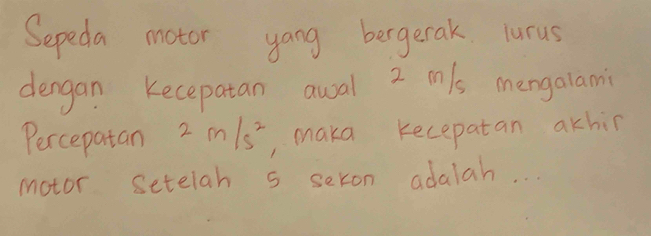 Sepeda motor yang bergerak lurus
dengan kecepatan awal 2 m/s mengalami
Percepatan 2 m/s², maka kecepatan akhir
motor setelah 5 sekon adalah ...